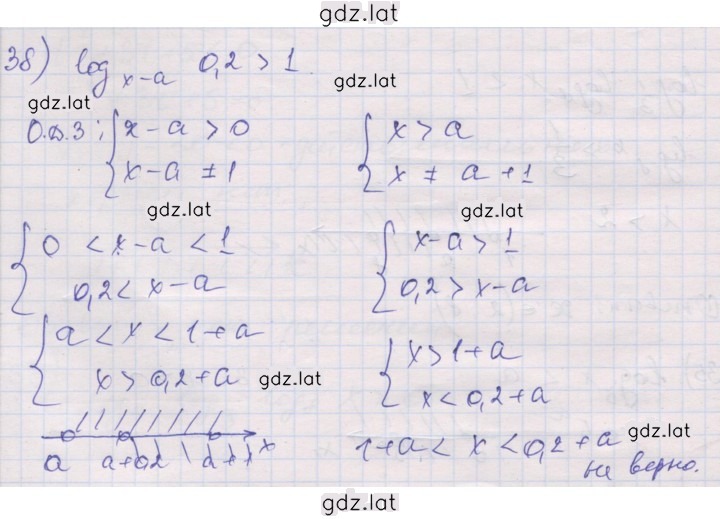 gdz.lat
38) log x-a 0,2 > 1
gdz.lat
gdz.lat
О.Д.З: { x-a > 0
x-a ≠ 1
{ x > a
x ≠ a+1
gdz.lat
gdz.lat
{ 0 < x-a < 1
0,2 < x-a
{ x-a > 1
0,2 > x-a
{ a < x < 1+a
x > 0,2+a
gdz.lat
{ x > 1+a
x < 0,2+a
a a+0,2 a+1 x
1+a < x < 0,2+a
gdz.lat
не верно.
gdz.lat